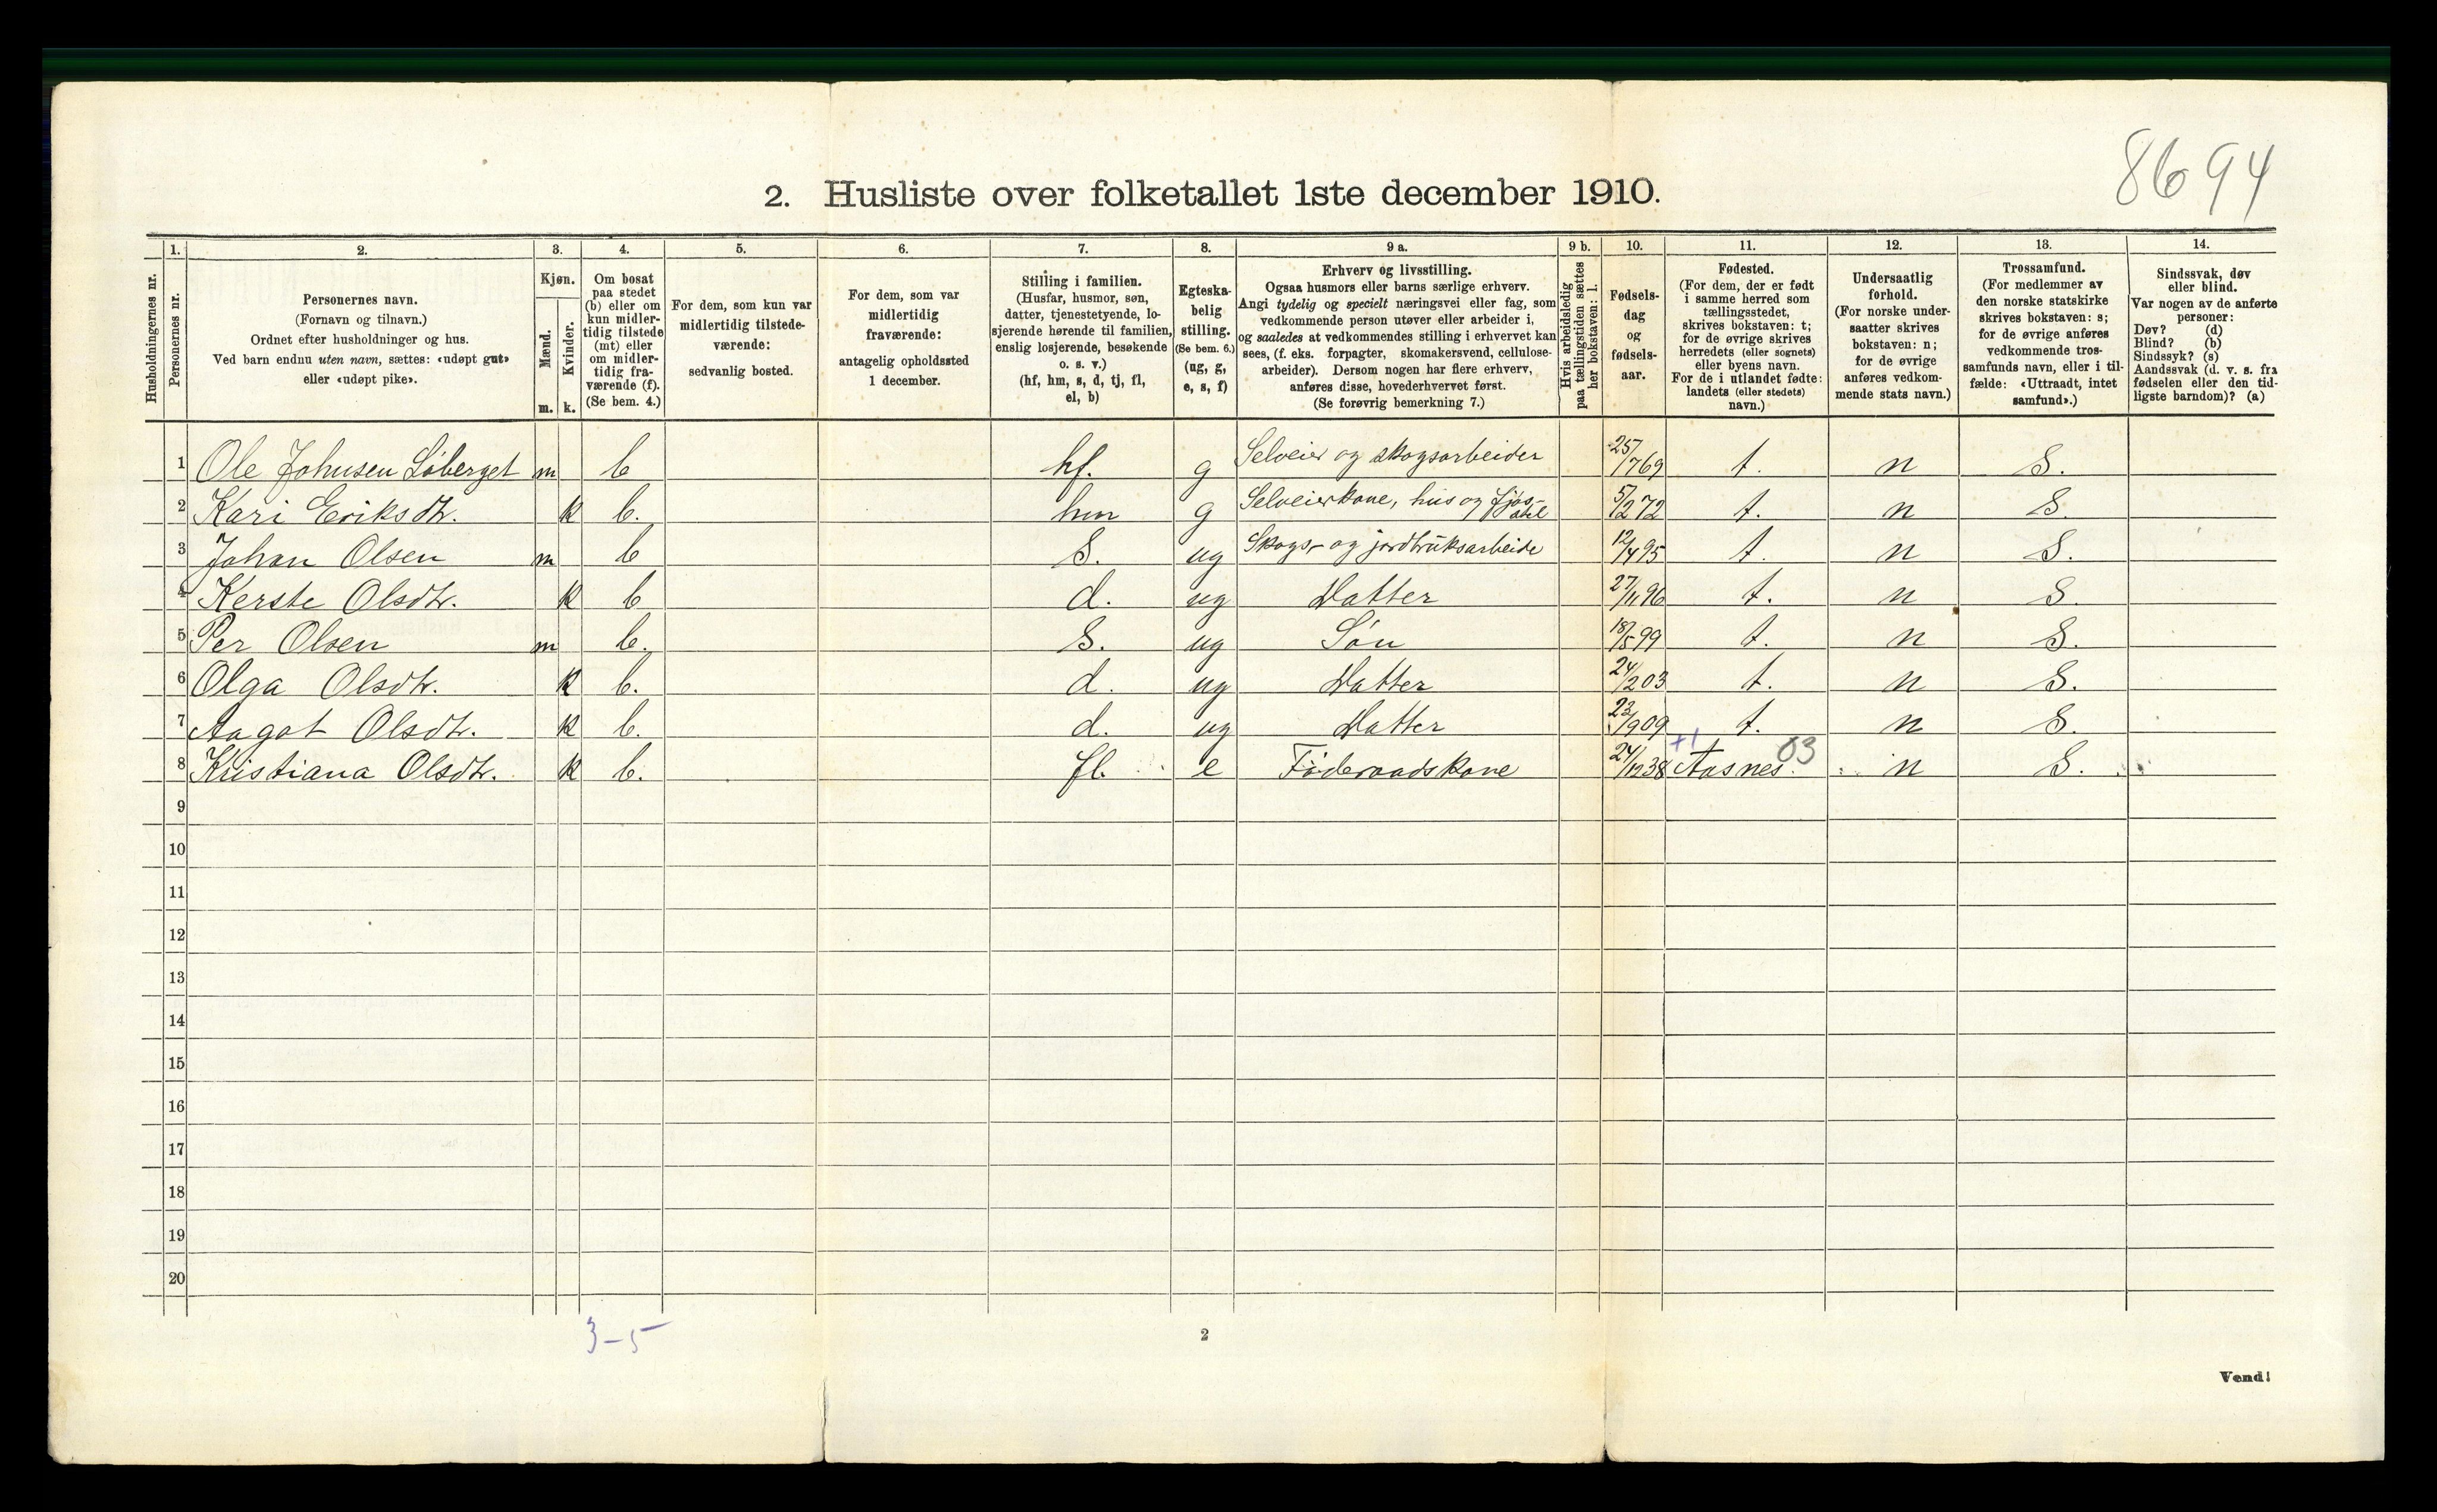 8694
2. Husliste over folketallet 1ste december 1910.
1. 2. 3. 4. 5. 6. 7. 8. 9 a. 9 b. 10. 11. 12. 13. 14.
Husholdningernes nr.
Personernes nr.
Personernes navn.
(Fornavn og tilnavn.)
Ordnet efter husholdninger og hus.
Ved barn endnu uten navn, sættes: «udøpt gut»
eller «udøpt pike».
Kjøn.
Mænd.
Kvinder.
m. k.
Om bosat
paa stedet
(b) eller om
kun midler-
tidig tilstede
(mt) eller
om midler-
tidig fra-
værende (f).
(Se bem. 4.)
For dem, som kun var
midlertidig tilstede-
værende:
sedvanlig bosted.
For dem, som var
midlertidig
fraværende:
antagelig opholdssted
1 december.
Stilling i familien.
(Husfar, husmor, søn,
datter, tjenestetyende, lo-
sjerende hørende til familien,
enslig losjerende, besøkende
o. s. v.)
(hf, hm, s, d, tj, fl,
el, b)
Egteska-
belig
stilling.
(Se bem. 6.)
(ug, g,
e, s, f)
Erhverv og livsstilling.
Ogsaa husmors eller barns særlige erhverv.
Angi tydelig og specielt næringsvei eller fag, som
vedkommende person utøver eller arbeider i,
og saaledes at vedkommendes stilling i erhvervet kan
sees, (f. eks. forpagter, skomakersvend, cellulose-
arbeider). Dersom nogen har flere erhverv,
anføres disse, hovederhvervet først.
(Se forøvrig bemerkning 7.)
Hvis arbeidsledig
paa tællingstiden sættes
her bokstaven: l.
Fødsels-
dag
og
fødsels-
aar.
Fødested.
(For dem, der er født
i samme herred som
tællingsstedet,
skrives bokstaven: t;
for de øvrige skrives
herredets (eller sognets)
eller byens navn.
For de i utlandet fødte:
landets (eller stedets)
navn.)
Undersaatlig
forhold.
(For norske under-
saatter skrives
bokstaven: n;
for de øvrige
anføres vedkom-
mende stats navn.)
Trossamfund.
(For medlemmer av
den norske statskirke
skrives bokstaven: s;
for de øvrige anføres
vedkommende tros-
samfunds navn, eller i til-
fælde: «Uttraadt, intet
samfund».)
Sindssvak, døv
eller blind.
Var nogen av de anførte
personer:
Døv? (d)
Blind? (b)
Sindssyk? (s)
Aandssvak (d. v. s. fra
fødselen eller den tid-
ligste barndom)? (a)
1 Ole Johnsen Löberget m b hf. g Selveier og skogsarbeider 25/7 69 t. n S.
2 Kari Eriksdtr. k b. hm g Selveierkone, hus og fjös- 5/2 72 t. n S.
3 Johan Olsen m b S. ug Skogs- og jordbruksarbeide 12/4 95 t. n S.
4 Kerste Olsdtr. k b d. ug Datter 27/11 96 t. n S.
5 Per Olsen m b. S. ug Sön 18/5 99 t. n S.
6 Olga Olsdtr. k b. d. ug Datter 24/2 03 t. n S.
7 Aagot Olsdtr. k b. d. ug Datter 23/9 09 t. n S.
8 Kristiana Olsdtr. k b. fl. e Föderaadskone 24/12 38 Aasnes. 03 n S.
9
10
11
12
13
14
15
16
17
18
19
20
3-5
2
Vend!